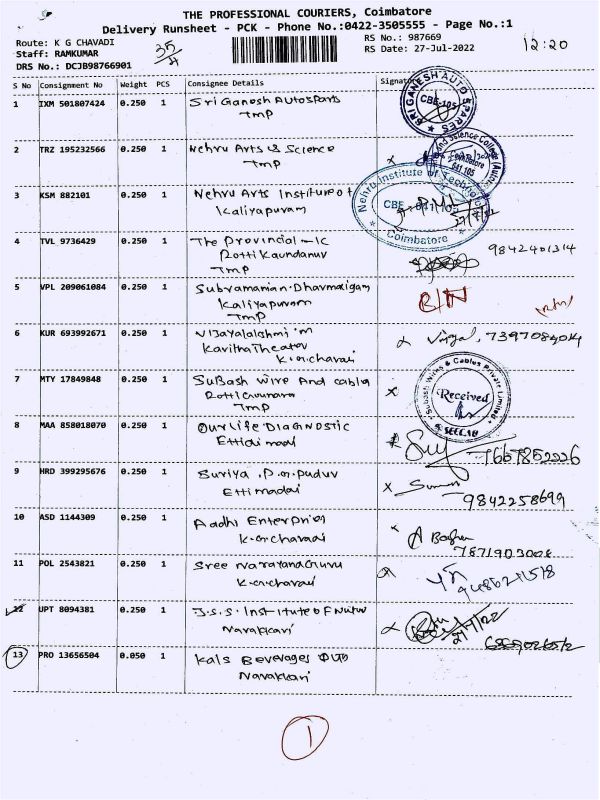 THE PROFESSIONAL COURIERS, Coimbatore
Delivery Runsheet - PCK - Phone No.:0422-3505555 - Page No.:1
Route: K G CHAVADI
RS No.: 987669
12:20
Staff: RAMKUMAR
35
RS Date: 27-Jul-2022
DRS No.: DCJB98766901
S No Consignment No Weight PCS Consignee Details Signature
1 IXM 501807424 0.250 1 Sri Ganesh Autosparts
TMP
SRI GANESH AUTO SPARES
CBE-105
2 TRZ 195232566 0.250 1 Nehru Arts & Science
TMP
641 105
3 KSM 882101 0.250 1 Nehru Arts Institute of
Kaliyapuram
Nehru Institute of Technology
CBE - 641 105
Coimbatore
4 TVL 9736429 0.250 1 The Provincial
TMP
9842401314
5 VPL 209061084 0.250 1 Subramanian.Dharmaligam
Kaliyapuram
TMP
6 KUR 693992671 0.250 1 Vijayalalshmi.m
Kavitha Theator
K.G.chavadi
7397084014
7 MTY 17849848 0.250 1 SuBash wire And cable
TMP
Subash Wires & Cables Private Limited
Received
8 MAA 858018070 0.250 1 Our Life DIAGNOSTIC
Ettidimadi
7667852226
9 HRD 399295676 0.250 1 Suriya .P.G.Pudur
Ettimadai
9842258699
10 ASD 1144309 0.250 1 Aadhi Enterpries
K.G.chavadi
7871903008
11 POL 2543821 0.250 1 Sree Narayanaguru
K.G.chavadi
9486211518
12 UPT 8094381 0.250 1 J.S.S. Institute of Natur
Navakkari
13 PRO 13656504 0.050 1 Kals Beverages
Navakkari
1